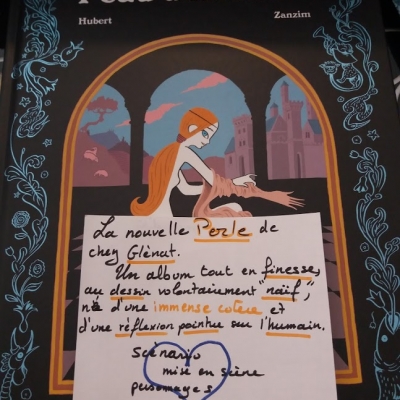 Peau
Hubert Zanzim
La nouvelle Perle de
chez Glénat.
Un album tout en finesse,
au dessin volontairement "naïf",
né d'une immense colère et
d'une réflexion pointue sur l'humain.
Scénario
mise en scène
personnages